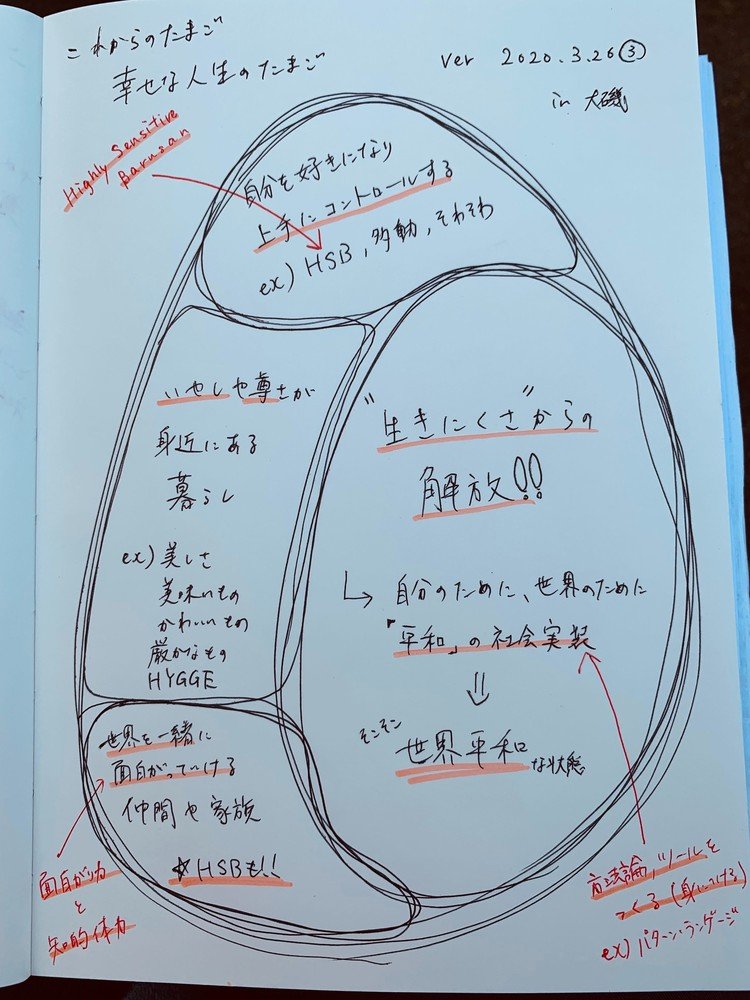 これからのたまご
幸せな人生のたまご
ver 2020.3.26③
in 大磯
Highly Sensitive
Barusan
自分を好きになり
上手にコントロールする
ex) HSB, 多動, そわそわ
いやしや尊さが
身近にある
暮らし
ex) 美しさ
美味いもの
かわいいもの
厳かなもの
HYGGE
"生きにくさ"からの
解放!!
↳ 自分のために、世界のために
「平和」の社会実装
⇓
そこそこ
世界平和な状態
世界を一緒に
面白がっていける
仲間や家族
☆HSBも!!
面白がり力
と
知的体力
方法論,ツールを
つくる(身につける)
ex) パターン・ランゲージ